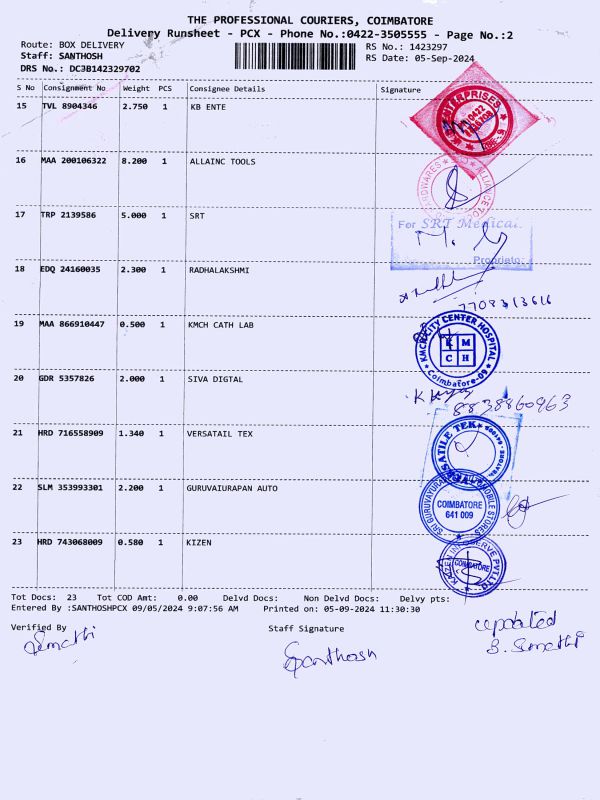 THE PROFESSIONAL COURIERS, COIMBATORE
Delivery Runsheet - PCX - Phone No.:0422-3505555 - Page No.:2
Route: BOX DELIVERY RS No.: 1423297
Staff: SANTHOSH RS Date: 05-Sep-2024
DRS No.: DC3B142329702
S No Consignment No Weight PCS Consignee Details Signature
15 TVL 8904346 2.750 1 KB ENTE
ENTERPRISES
0422
16 MAA 200106322 8.200 1 ALLAINC TOOLS
17 TRP 2139586 5.000 1 SRT
For SRT Medical
Proprietor
18 EDQ 24160035 2.300 1 RADHALAKSHMI
7708313616
19 MAA 866910447 0.500 1 KMCH CATH LAB
KMCH CITY CENTER HOSPITAL
K M
C H
Coimbatore-09
20 GDR 5357826 2.000 1 SIVA DIGTAL
8838860963
21 HRD 716558909 1.340 1 VERSATAIL TEX
22 SLM 353993301 2.200 1 GURUVAIURAPAN AUTO
COIMBATORE
641 009
23 HRD 743068009 0.580 1 KIZEN
COIMBATORE
Tot Docs: 23 Tot COD Amt: 0.00 Delvd Docs: Non Delvd Docs: Delvy pts:
Entered By :SANTHOSHPCX 09/05/2024 9:07:56 AM Printed on: 05-09-2024 11:30:30
Verified By Staff Signature updated
Sumathi Santhosh B. Sumathi